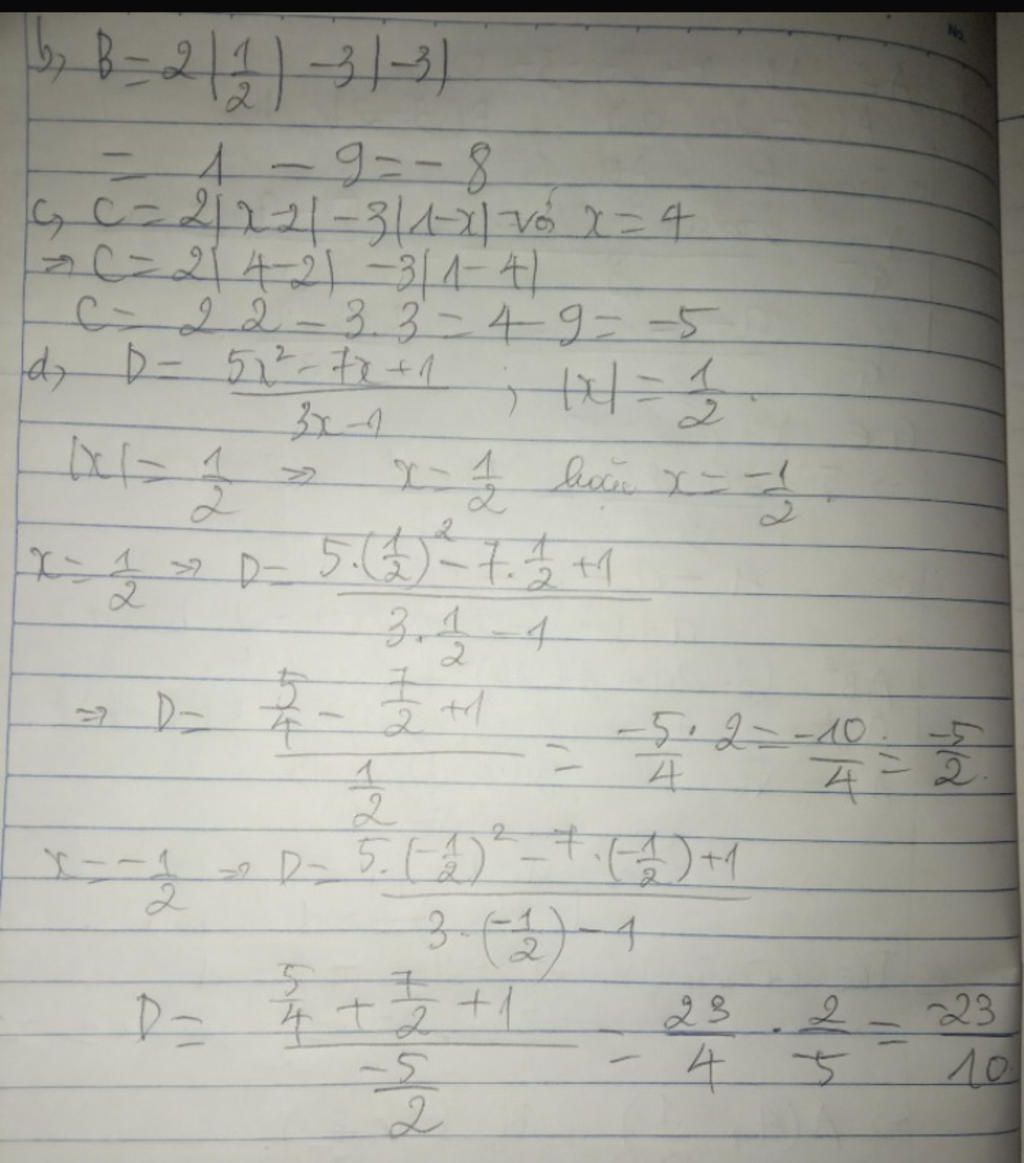 No.
b, B = 2|1/2| - 3|-3|
= 1 - 9 = -8
c, C = 2|x-2| - 3|1-x| với x = 4
⇒ C = 2|4-2| - 3|1-4|
C = 2 2 - 3.3 = 4 - 9 = -5
d, D = (5x² - 7x + 1)/(3x - 1) ; |x| = 1/2.
|x| = 1/2 ⇒ x = 1/2 hoặc x = -1/2.
x = 1/2 ⇒ D = (5.(1/2)² - 7.1/2 + 1)/(3.1/2 - 1)
⇒ D = (5/4 - 7/2 + 1)/(1/2) = -5/4 . 2 = -10/4 = -5/2.
x = -1/2 ⇒ D = (5.(-1/2)² - 7.(-1/2) + 1)/(3.(-1/2) - 1)
D = (5/4 + 7/2 + 1)/(-5/2) = 23/4 . 2/-5 = -23/10